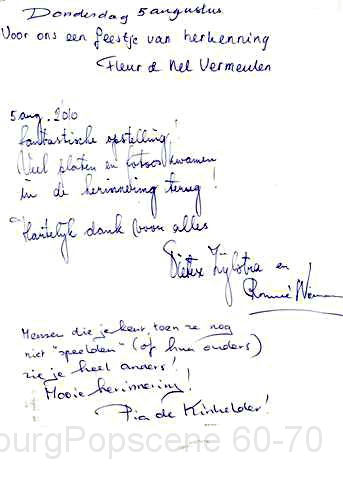 Donderdag 5 augustus
Voor ons een feestje van herkenning
Fleur & Nel Vermeulen
5 aug. 2010
fantastische opstelling!
Veel platen en foto's kwamen
in de herinnering terug!
Hartelijk dank voor alles
Zijlstra en
Mensen die je kent, toen ze nog
niet "speelden" (of hun ouders)
zie je heel anders!
Mooie herinnering!
Pia de Kinkelder!
burgPopscene 60-70